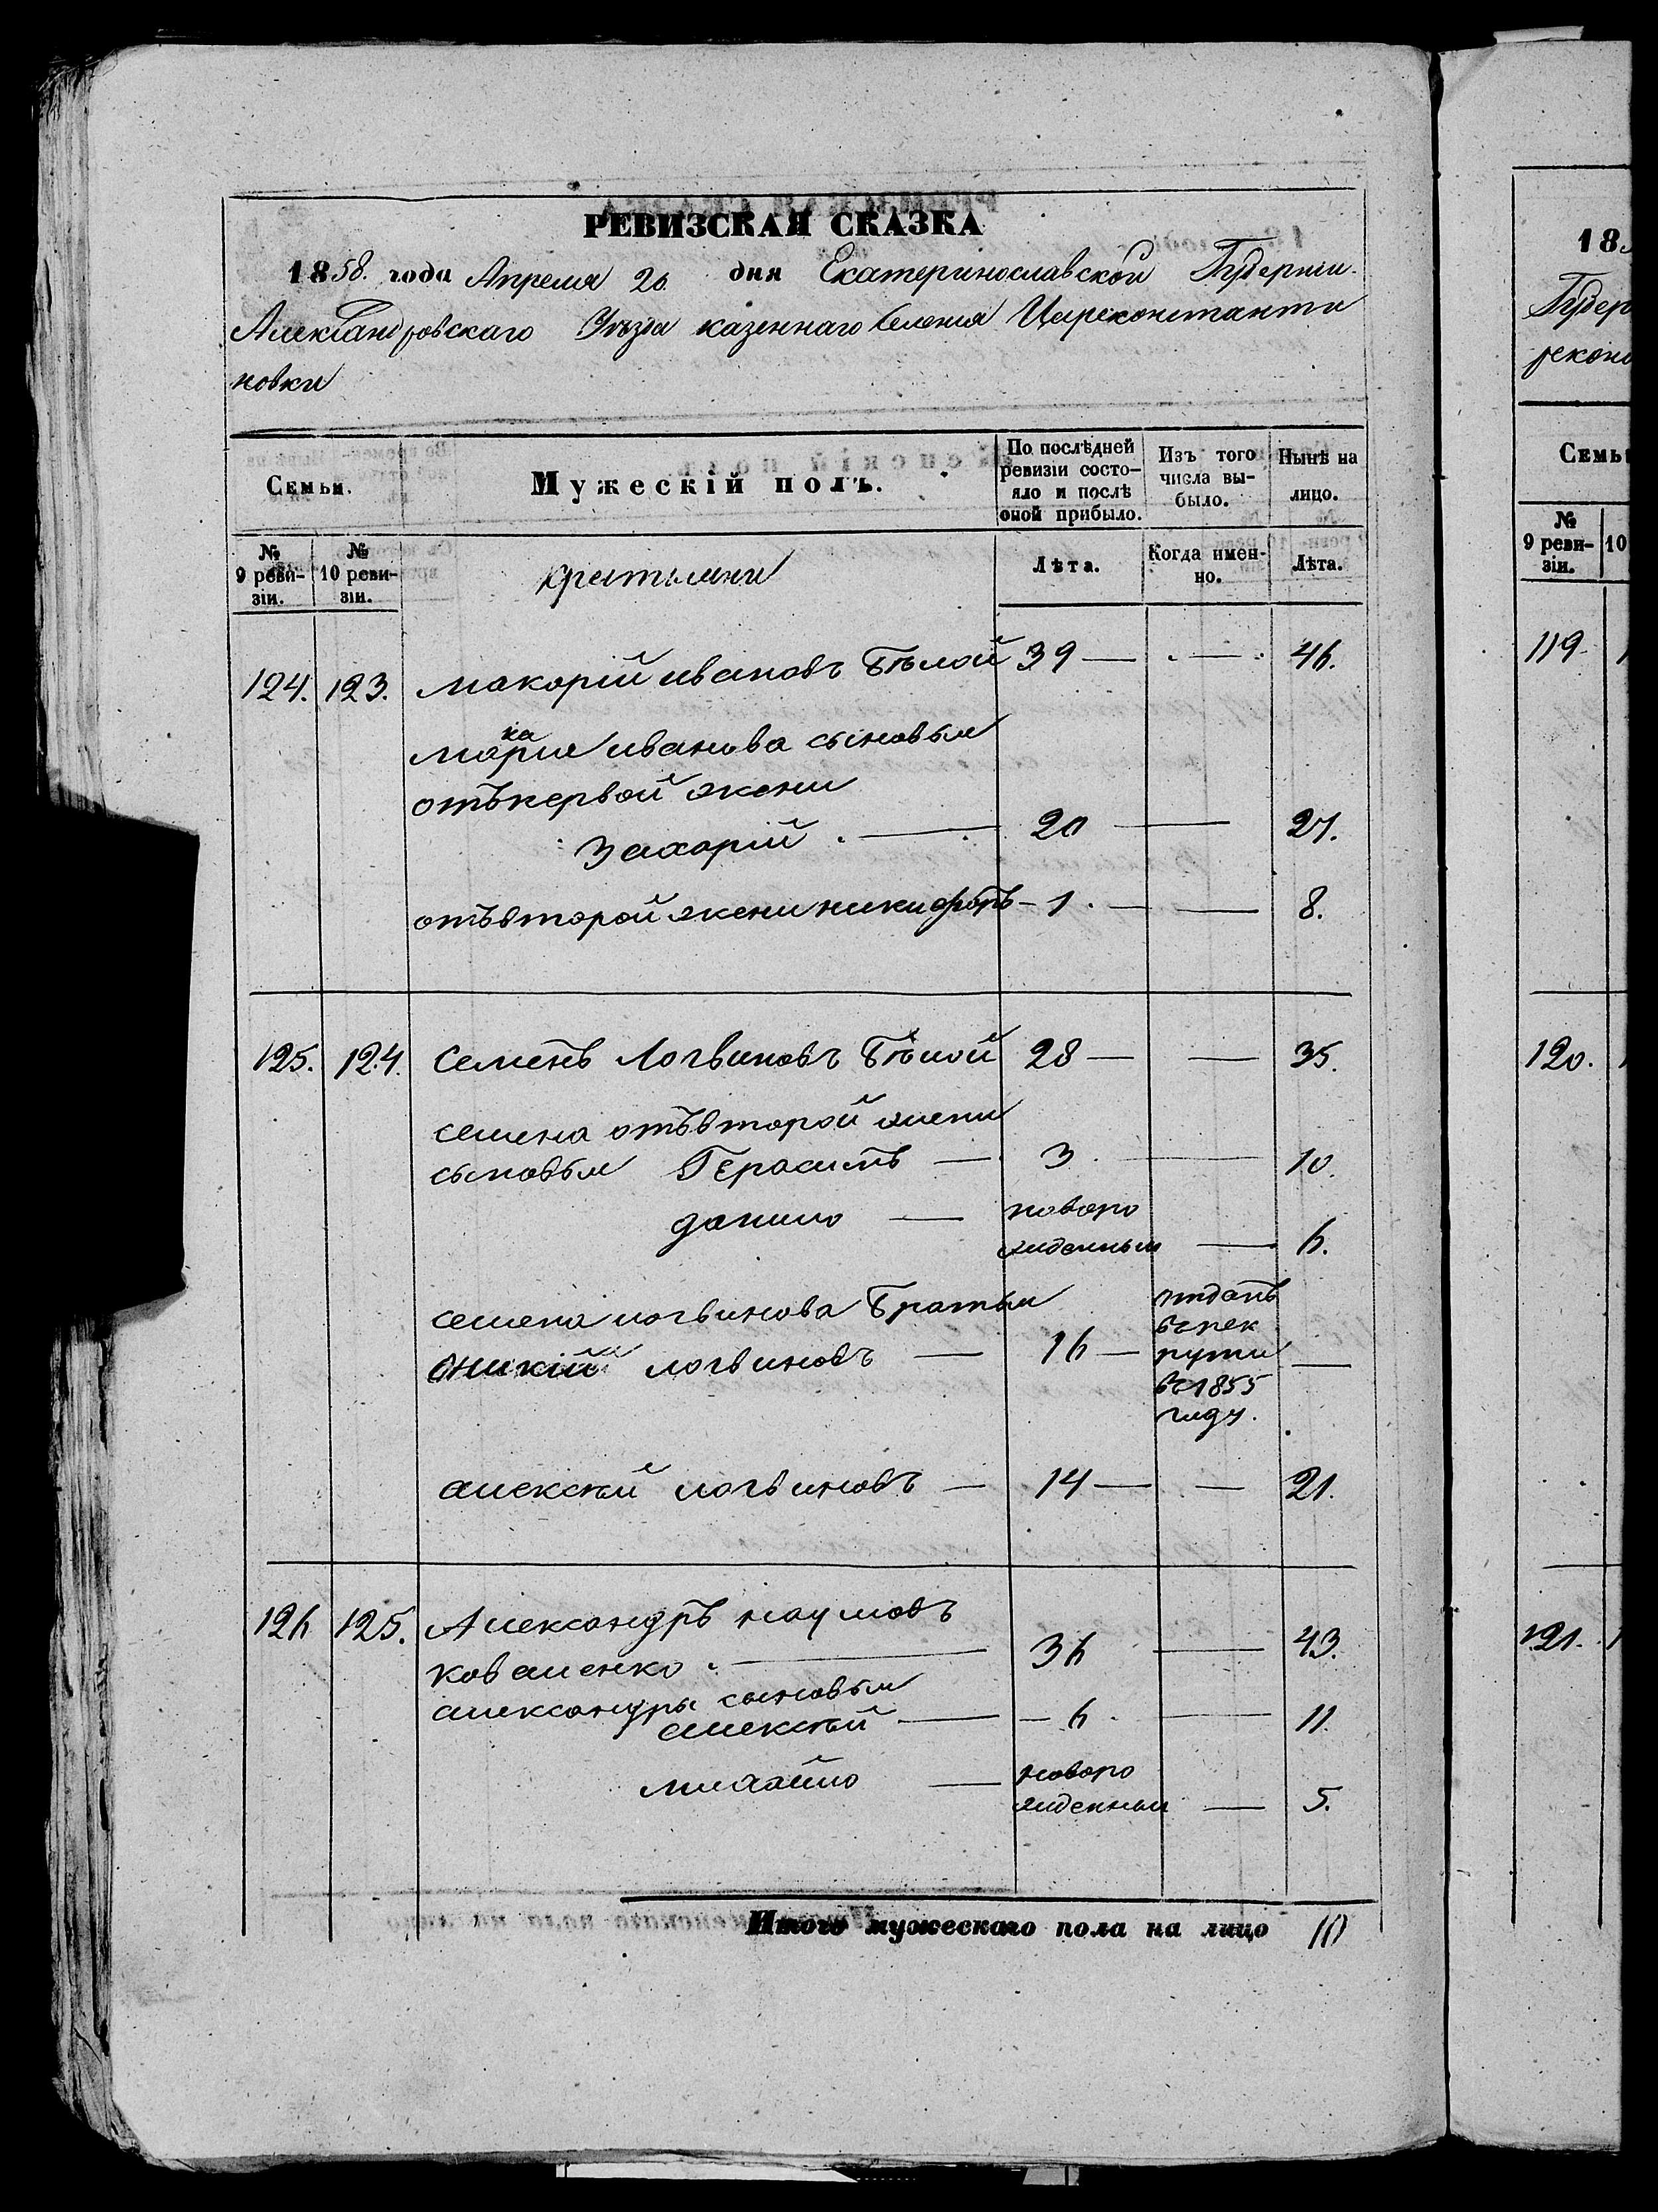 РЕВИЗСКАЯ СКАЗКА
1858. года Апреля 20. дня Екатеринославской Губернии
Александровскаго Уезда казеннаго Селения Цареконстанти
новки
Семьи.
Мужескій полъ.
По послѣдней
ревизіи состо-
яло и послѣ
оной прибыло.
Изъ того
числа вы-
было.
Нынѣ на
лицо.
№
9 реви-
зіи.
№
10 реви-
зіи.
Лѣта.
Когда имен-
но.
Лѣта.
124. 123. макорій ивановъ Бѣлой 39 — — 46.
ка
марие иванова сыновья
отъпервой жени
Захорій — 20 — 27.
отъвторой жени никифоръ — 1 — — 8.
125. 124. семенъ Логвиновъ Бѣлой 28 — — 35.
семена отъвторой жени
сыновья Герасимъ — 3 — 10.
данило — новоро
жденный — 6.
семена логвинова Братья
логвиновъ — 16 —
отданъ
въ рек
рути
въ 1855
году.
—
алексѣй логвиновъ — 14 — — 21.
126 125. Александръ наумовъ
коваленко — 36 — 43.
александры сыновья
алексѣй — — 6 — 11.
михайло — новоро
жденный — 5.
Итого мужескаго пола на лицо 10
18
Губер
рекон
Семьи
№
9 реви-
зіи.
10
119
120.
121.